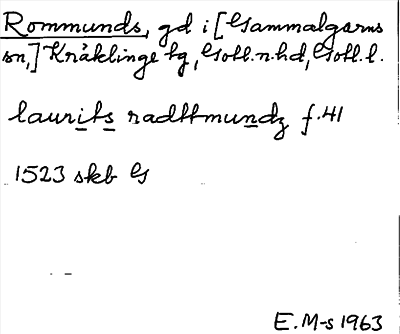 Rommunds, gd i [Gammalgarns
sn,] Kräklinge tg, Gotl. n. hd, Gotl. l.
laurits radhmundz f. 41
1523 skb G
E. M-s 1963